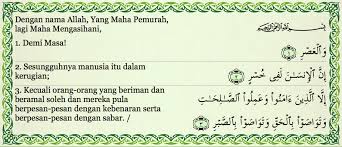 Dengan nama Allah, Yang Maha Pemurah,
lagi Maha Mengasihani,
بِسْمِ ٱللَّهِ ٱلرَّحْمَٰنِ ٱلرَّحِيمِ
1. Demi Masa!
وَٱلْعَصْرِ ١
2. Sesungguhnya manusia itu dalam
kerugian;
إِنَّ ٱلْإِنسَٰنَ لَفِى خُسْرٍ ٢
3. Kecuali orang-orang yang beriman dan
beramal soleh dan mereka pula
berpesan-pesan dengan kebenaran serta
berpesan-pesan dengan sabar. /
إِلَّا ٱلَّذِينَ ءَامَنُوا۟ وَعَمِلُوا۟ ٱلصَّٰلِحَٰتِ
وَتَوَاصَوْا۟ بِٱلْحَقِّ وَتَوَاصَوْا۟ بِٱلصَّبْرِ ٣